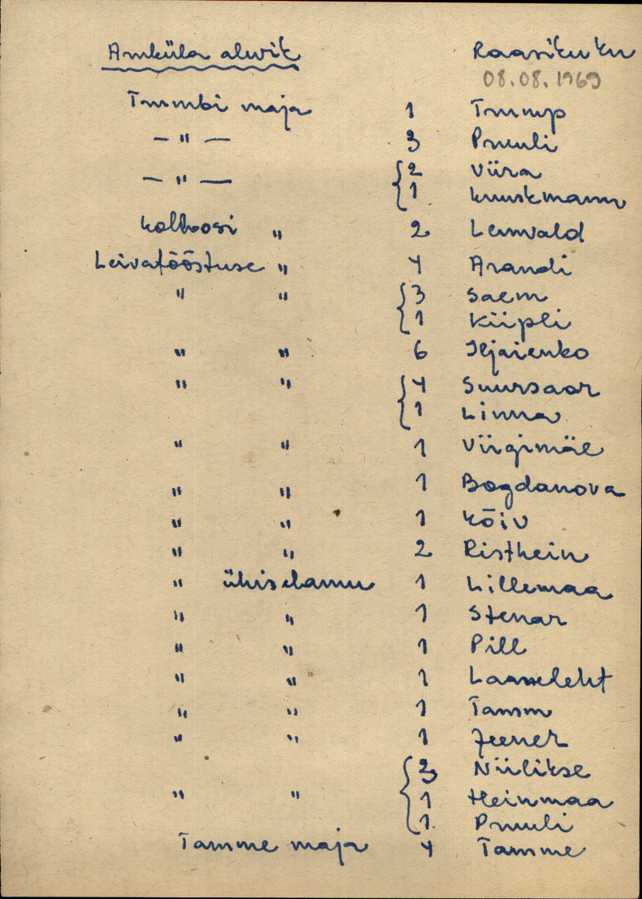 Aruküla alevik Raasiku kn
08.08.1969
Trumbi maja 1 Trump
— " — 3 Pruuli
— " — { 2 Viira
1 Kuuskmann
Kolhoosi " 2 Leinvald
Leivatööstuse " 4 Arandi
" " { 3 Saem
1 Kiipli
" " 6 Iljaienko
" " { 4 Suursaar
1 Linna
" " 1 Virgimäe
" " 1 Bogdanova
" " 1 Kõiv
" " 2 Risthein
" ühiselamu 1 Lillemaa
" " 1 Stenar
" " 1 Pill
" " 1 Laaneleht
" " 1 Tamm
" " 1 Jeener
{ 3 Niilikse
" " 1 Heinmaa
1 Pruuli
Tamme maja 4 Tamme